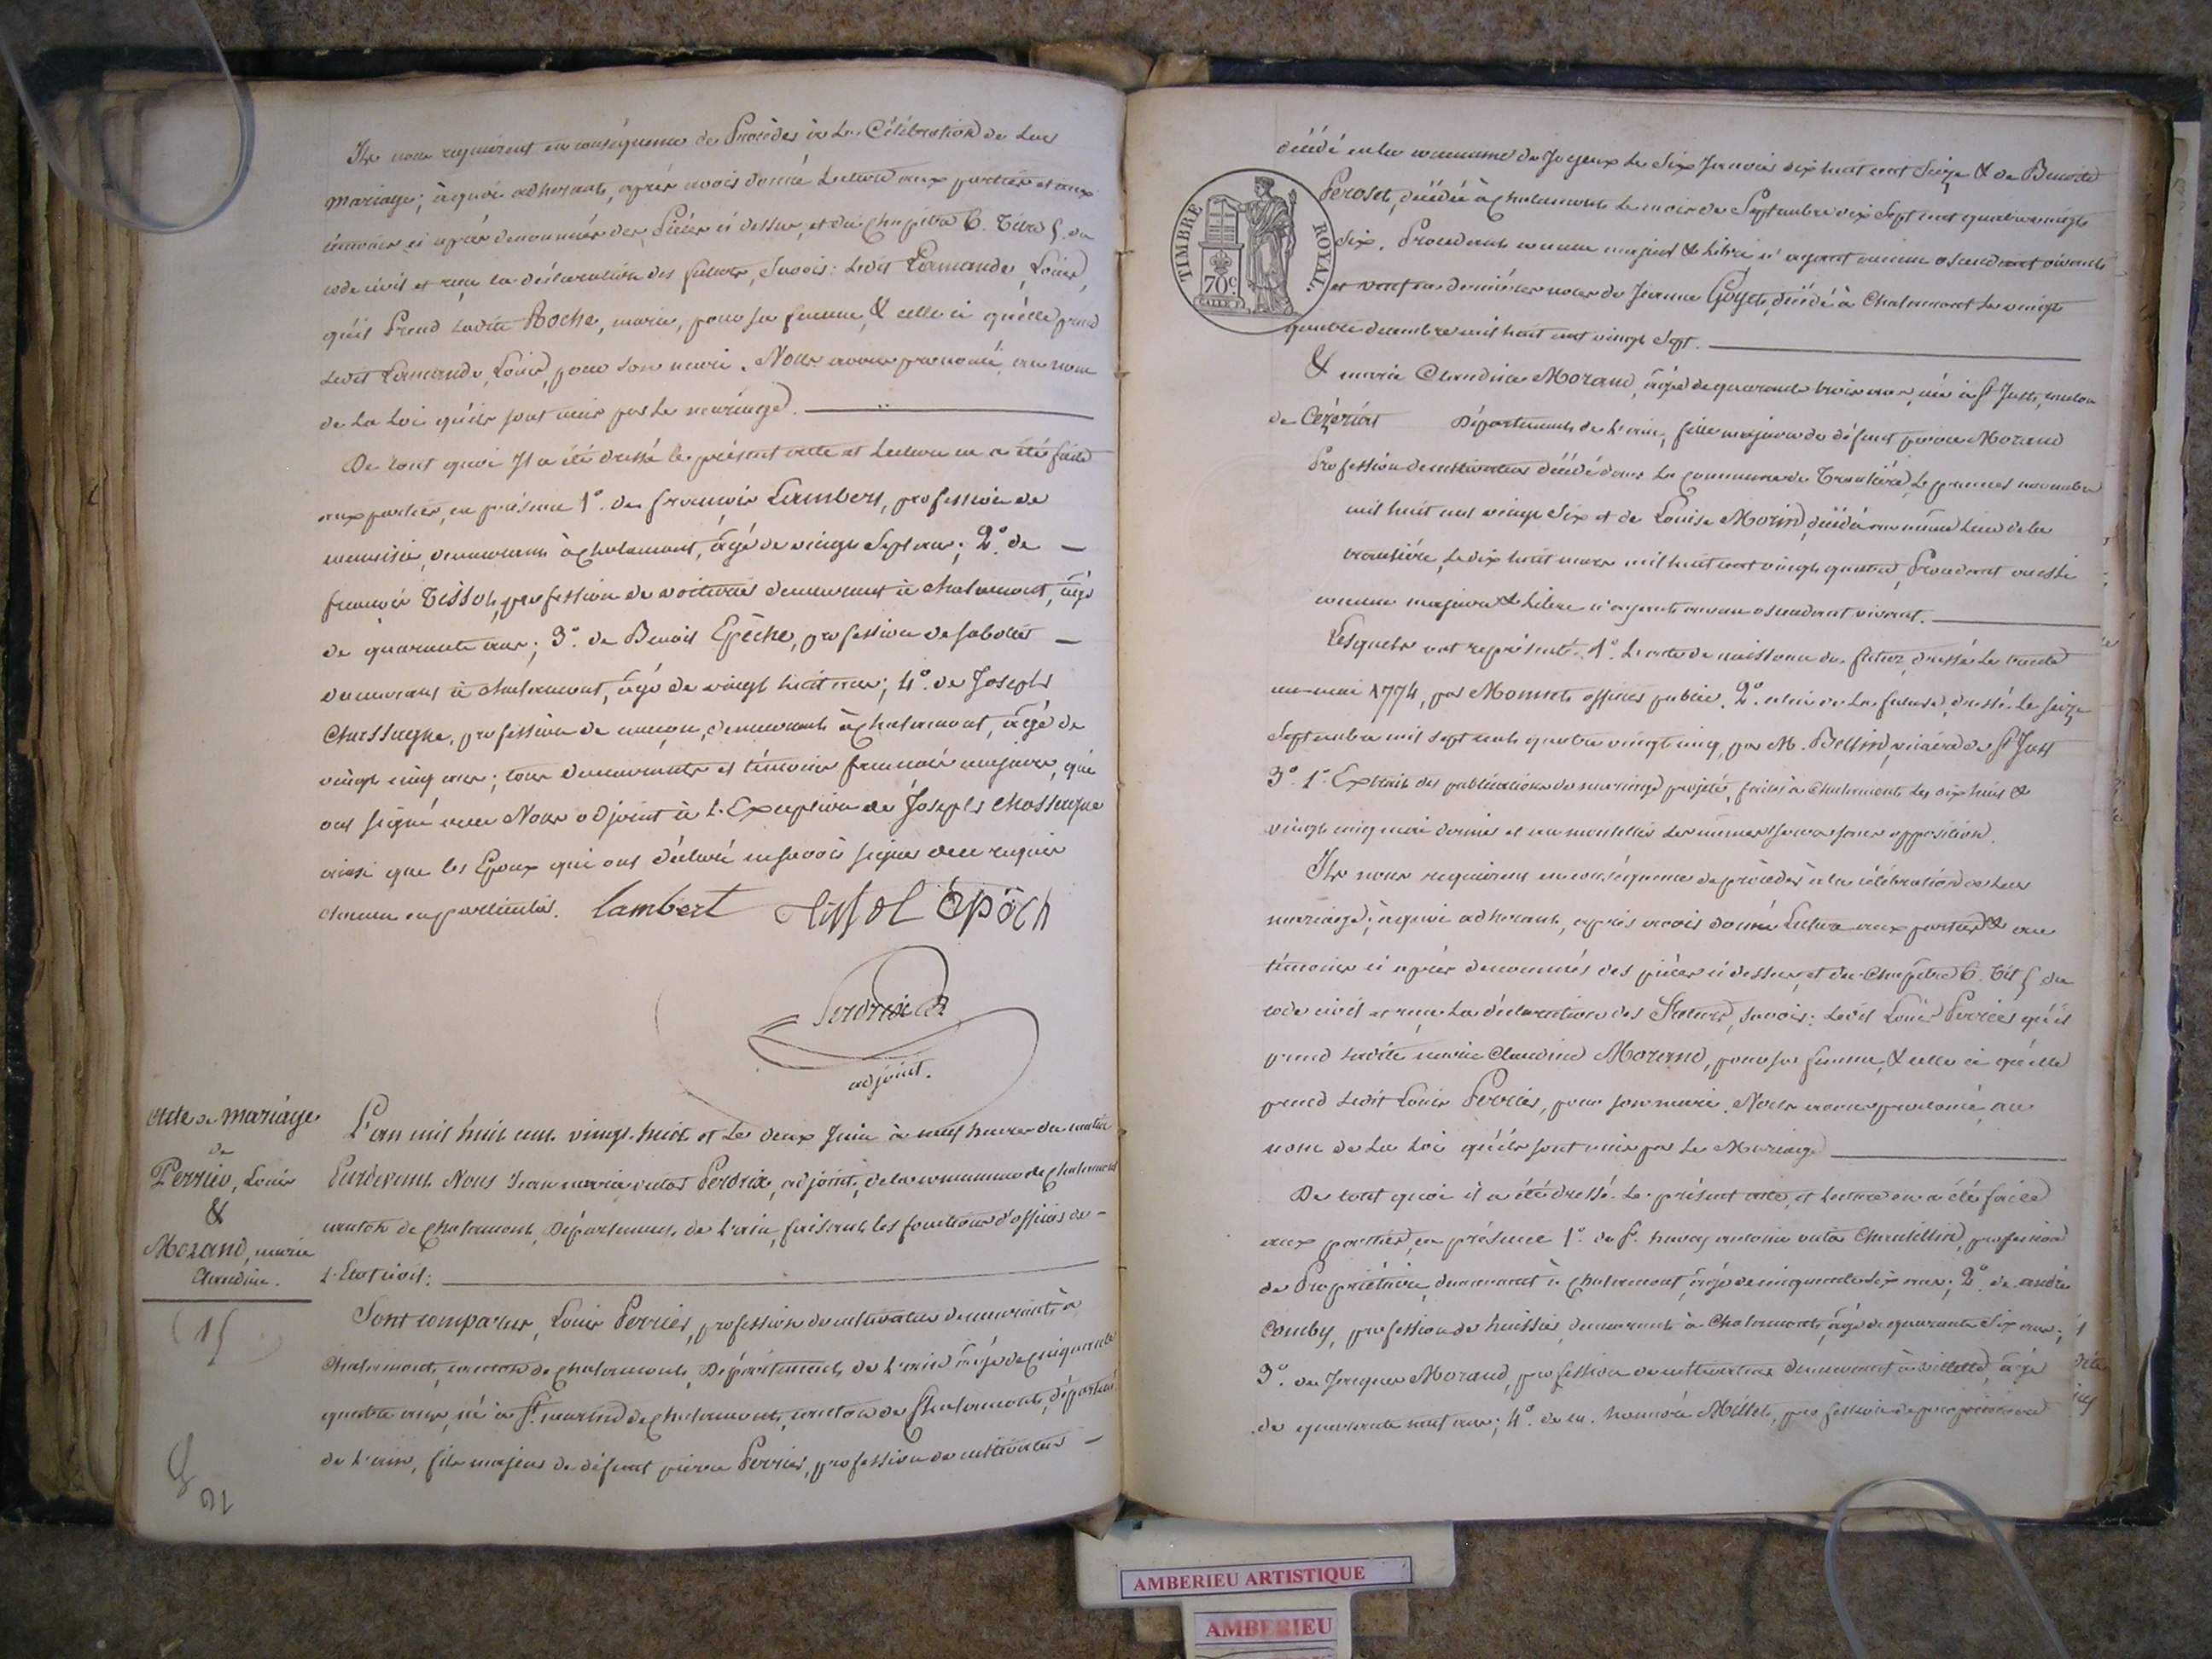 Ils nous requierent en conséquence de Procéder à la Célébration de leur
mariage; à quoi adhérants, après avoir donné Lecture aux parties et aux
témoins ci après dénommés des Pièces ci dessus, et du Chapitre 6. Titre 5. du
code civil et reçu la déclaration des futurs, Savoir: Ledit Lamande, Louis,
qu'il Prend Ladite Roche, marie, pour sa femme, & celle ci qu'elle prend
Ledit Lamande, Louis, pour son mari. Nous avons prononcé, au nom
de La Loi qu'ils sont unis par Le mariage.
De tout quoi Il a été dressé le présent acte et Lecture en a été faite
aux parties, en présence 1º. de françois Lambert, profession de
demeurant à Chalamont, âgé de vingt Sept ans; 2º. de
françois Tissot, profession de voiturier demeurant à Chalamont, âgé
de quarante ans; 3º. de Benoit Epèche, profession de sabotier
demeurant à Chalamont, âgé de vingt huit ans; 4º. de Joseph
Chassagne, profession de maçon, demeurant à Chalamont, âgé de
vingt cinq ans; tous demeurants et témoins français majeurs, qui
ont signé avec Nous adjoint à L'Exception de Joseph Chassagne
ainsi que les Epoux qui ont déclaré ne savoir signer de ce requis
chacun en particulier. Lambert Tissot Epèch
Perdrix
adjoint.
Acte de mariage
de
Perrier, Louis
&
Morand, marie
Claudine.
15
L'an mil huit cent vingt-huit et Le deux Juin à neuf heures du matin
Pardevant Nous Jean marie Perdrix, adjoint, de la commune de Chalamont
canton de Chalamont, Département de L'ain, faisant les fonctions d'officier de
L'Etat civil:
Sont comparus, Louis Perrier, profession de cultivateur demeurant à
Chalamont, canton de Chalamont, Département de L'ain âgé de cinquante
quatre ans, né à St. martin de Chalamont, canton de Chalamont, départemt
de L'ain, fils majeur de défunt pierre Perrier, profession de cultivateur
21
décédé en la commune de Joyeux Le Six Janvier dix huit cent Seize & de Benoite
Peroset, décédée à Chalamont Le mois de Septembre dix Sept cent quatre vingt
Six, Procédant comme majeur & libre n'ayant aucun ascendant vivant
et veuf en dernières noces de Jeanne Goyet, décédé à Chalamont Le vingt
quatre décembre mil huit cent vingt Sept.
TIMBRE ROYAL.
70c.
& marie Claudine Morand, âgée de quarante trois ans, née à St Just, canton
de Cézériat Département de L'ain, fille majeure de défunt pierre Morand
Profession de cultivateur décédé dans La commune de Tranclière, Le premier novembre
mil huit cent vingt Six et de Louise Morin, décédée au même Lieu de la
tranclière, Le dix huit mars mil huit cent vingt quatre, Procédant aussi
comme majeure & Libre n'ayant aucun ascendant vivant.
Lesquels ont représenté: 1º. L'acte de naissance du futur, dressé Le trente
un mai 1774, par Monnet officier public. 2º. celui de La future, dressé Le Seize
Septembre mil sept cent quatre vingt cinq, par M. Bellin, vicaire de St Just
3º. 1º. Extrait des publications de mariage projeté, faites à Chalamont les dix huit &
vingt cinq mai dernier et un montellier Les mêmes jours sans opposition.
Ils nous requierent en conséquence de procéder à la célébration de Leur
mariage; à quoi adhérant, après avoir donné Lecture aux parties & aux
témoins ci après dénommés des pièces ci dessus, et du Chapitre 6. Tit 5 du
code civil et reçu La déclaration des Futurs, savoir: Ledit Louis Perrier qu'il
prend Ladite marie Claudine Morand, pour sa femme, & celle ci qu'elle
prend Ledit Louis Perrier, pour son mari. Nous avons prononcé, au
nom de La Loi qu'ils sont unis par Le Mariage
De tout quoi il a été dressé Le présent acte, et Lecture en a été faite
aux parties, en présence 1º. de antoine Chantellin, profession
de Propriétaire, demeurant à Chalamont, âgé de cinquante Six ans; 2º. de andré
Comby, profession de huissier, demeurant à Chalamont, âgé de quarante Six ans;
3º. de Jacques Morand, profession de cultivateur demeurant à Villette, âgé
de quarante ans; 4º. de m. honoré Millet, profession de
AMBERIEU ARTISTIQUE
AMBERIEU